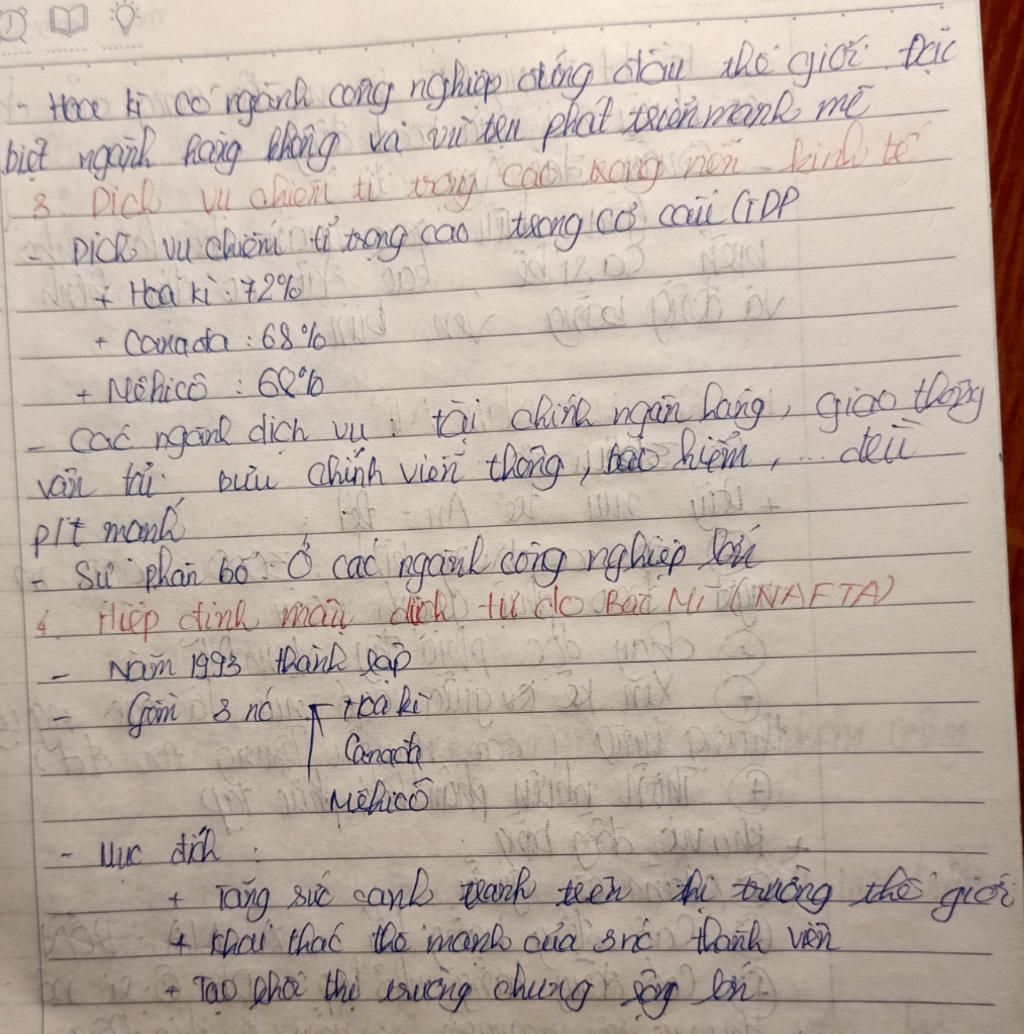 - Hoa kì có ngành công nghiệp đứng đầu thế giới. Đặc
biệt ngành hàng không và vũ trụ phát triển mạnh mẽ
3. Dịch vụ chiếm tỉ trọng cao trong nền kinh tế
- Dịch vụ chiếm tỉ trọng cao trong cơ cấu GDP
+ Hoa kì : 72%
+ Canada : 68%
+ Mêhicô : 68%
- Các ngành dịch vụ : tài chính ngân hàng, giao thông
vận tải, bưu chính viễn thông, bảo hiểm, ... đều
p/t mạnh
- Sự phân bố : Ở các ngành công nghiệp lớn
4. Hiệp định mậu dịch tự do Bắc Mĩ (NAFTA)
- Năm 1993 thành lập
- Gồm 3 nc Hoa kì
Canada
Mêhicô
- Mục đích :
+ Tăng sức cạnh tranh trên thị trường thế giới
+ Khai thác thế mạnh của 3 nc thành viên
+ Tạo khối thị trường chung rộng lớn.